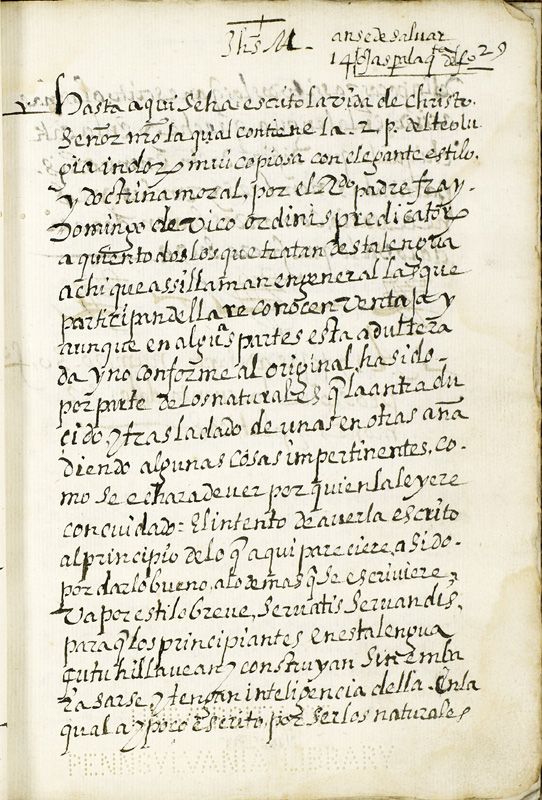 Jhs M.
an se de saluar
14 fojas pa la qta de fo 29
Hasta aqui se ha escrito la vida de christo.
señor nro la qual contiene la .2. p. del teolu
gia indor muí copiosa con elegante estilo.
y doctrina moral, por el Rdo padre fray.
Domingo de vico ordinis predicator
a quien todos los que tratan desta lengua
achi que assi llaman en general las que
participan della reconocen ventaja y
aunque en alguas partes esta adultera
da y no conforme al original, ha sido.
por parte de los naturales q la an tradu
cido y trasladado de unas en otras aña
diendo algunas cosas impertinentes. co-
mo se echara de ver por quien la leyere
con cuidado: El intento de averla escrito
al principio de lo q aqui pareciere, a sido.
por dar lo bueno, a lo demas q se escriviere,
va por estilo breve, servatis servandis,
para q los principiantes en esta lengua
çutuhil la vean y construyan sin emba
rasarse y tengan inteligencia della. En la
qual ay poco escrito, por ser los naturales
PENNSYLVANIA LIBRARY